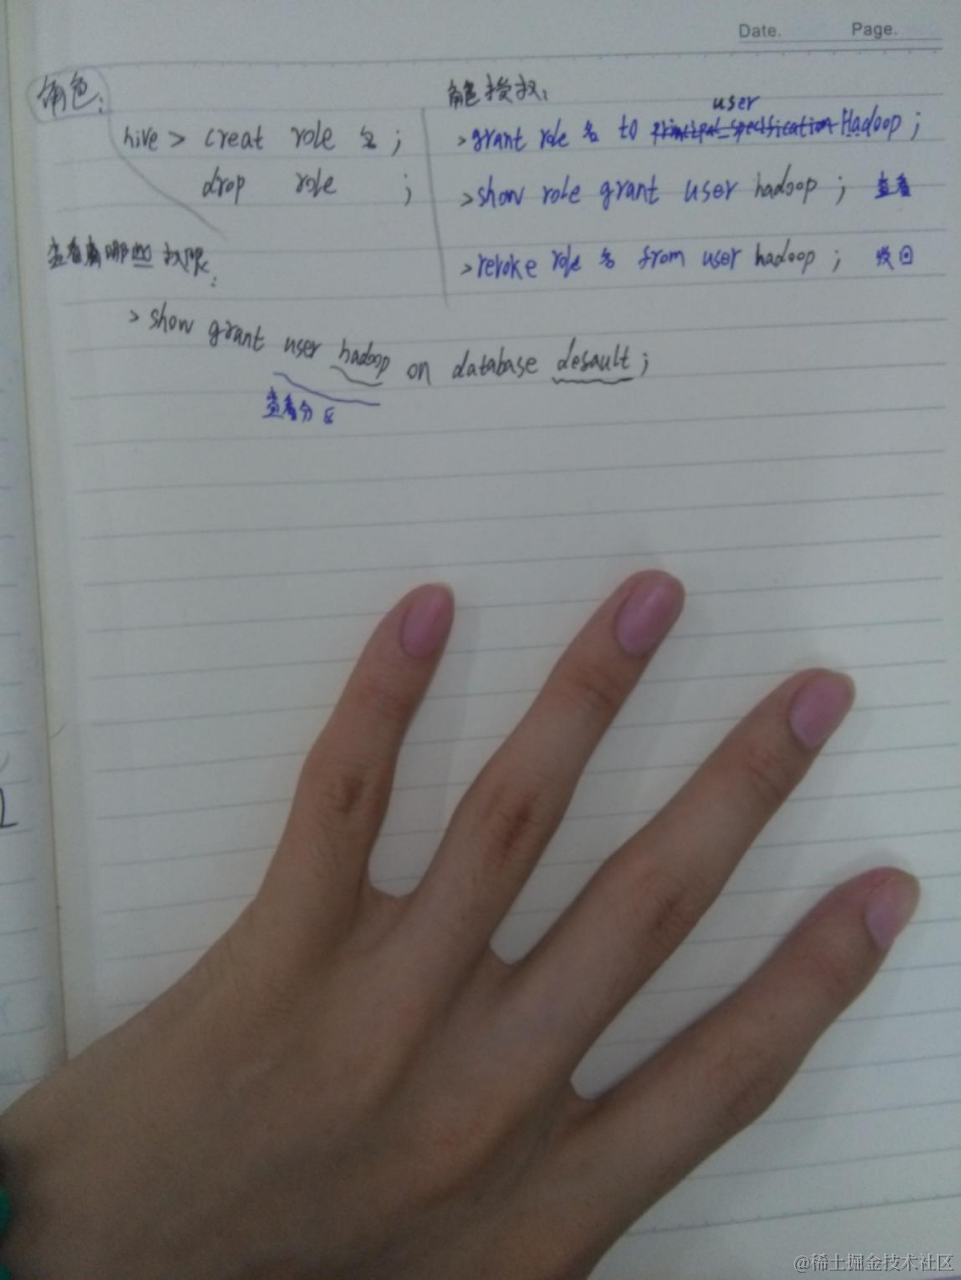 Date. Page.
角色:
hive > creat role 名 ;
drop role ;
角色授权:
user
>grant role 名 to principal_specification Hadoop ;
>show role grant user hadoop ; 查看
>revoke role 名 from user hadoop ; 收回
查看有哪些权限:
> show grant user hadoop on database default ;
查看分区
@稀土掘金技术社区